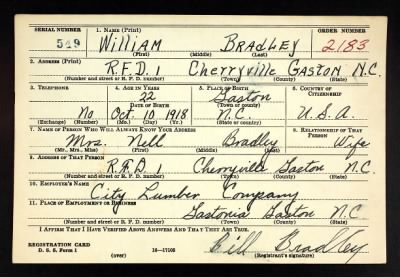 SERIAL NUMBER 1. NAME (Print) ORDER NUMBER
549 William BRADLEY 2183
(First) (Middle) (Last)
2. ADDRESS (Print)
R.F.D. 1 Cherryville GASTON N.C.
(Number and street or R. F. D. number) (Town) (County) (State)
3. TELEPHONE 4. AGE IN YEARS 5. PLACE OF BIRTH 6. COUNTRY OF CITIZENSHIP
22 Gaston
DATE OF BIRTH (Town or county)
No Oct. 10 1918 N.C. U.S.A.
(Exchange) (Number) (Mo.) (Day) (Yr.) (State or country)
7. NAME OF PERSON WHO WILL ALWAYS KNOW YOUR ADDRESS 8. RELATIONSHIP OF THAT PERSON
Mrs. Nell Bradley Wife
(Mr., Mrs., Miss) (First) (Middle) (Last)
9. ADDRESS OF THAT PERSON
R.F.D. 1 Cherryville Gaston N.C.
(Number and street or R. F. D. number) (Town) (County) (State)
10. EMPLOYER'S NAME
City Lumber Company
11. PLACE OF EMPLOYMENT OR BUSINESS
Gastonia Gaston N.C.
(Number and street or R. F. D. number) (Town) (County) (State)
I AFFIRM THAT I HAVE VERIFIED ABOVE ANSWERS AND THAT THEY ARE TRUE.
REGISTRATION CARD
D. S. S. Form 1 16—17105 Bill Bradley
(over) (Registrant's signature)